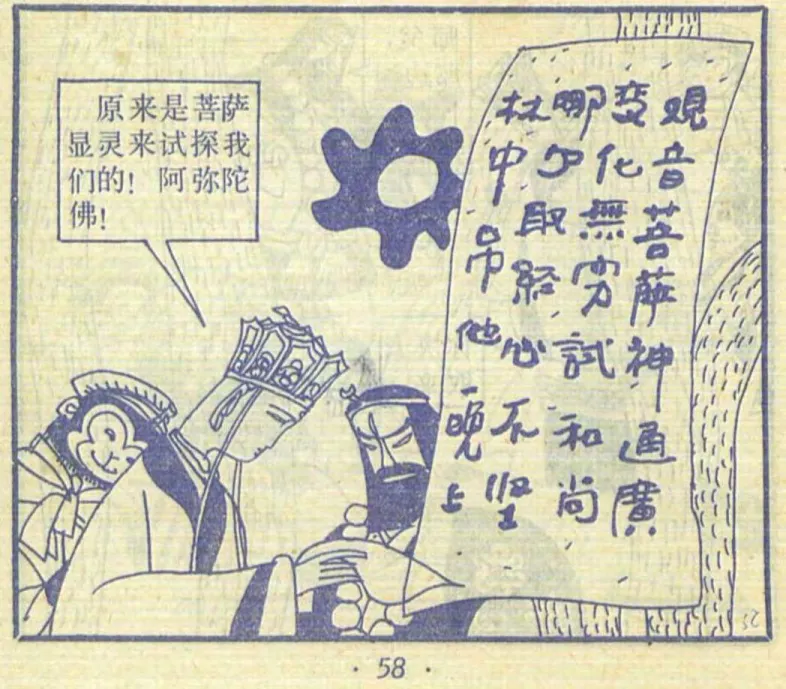 原来是菩萨
显灵来试探我
们的！阿弥陀
佛！
覌音菩薩神通廣
变化無穷試和尚
哪个取経心不坚
林中吊他一晚上
· 58 ·